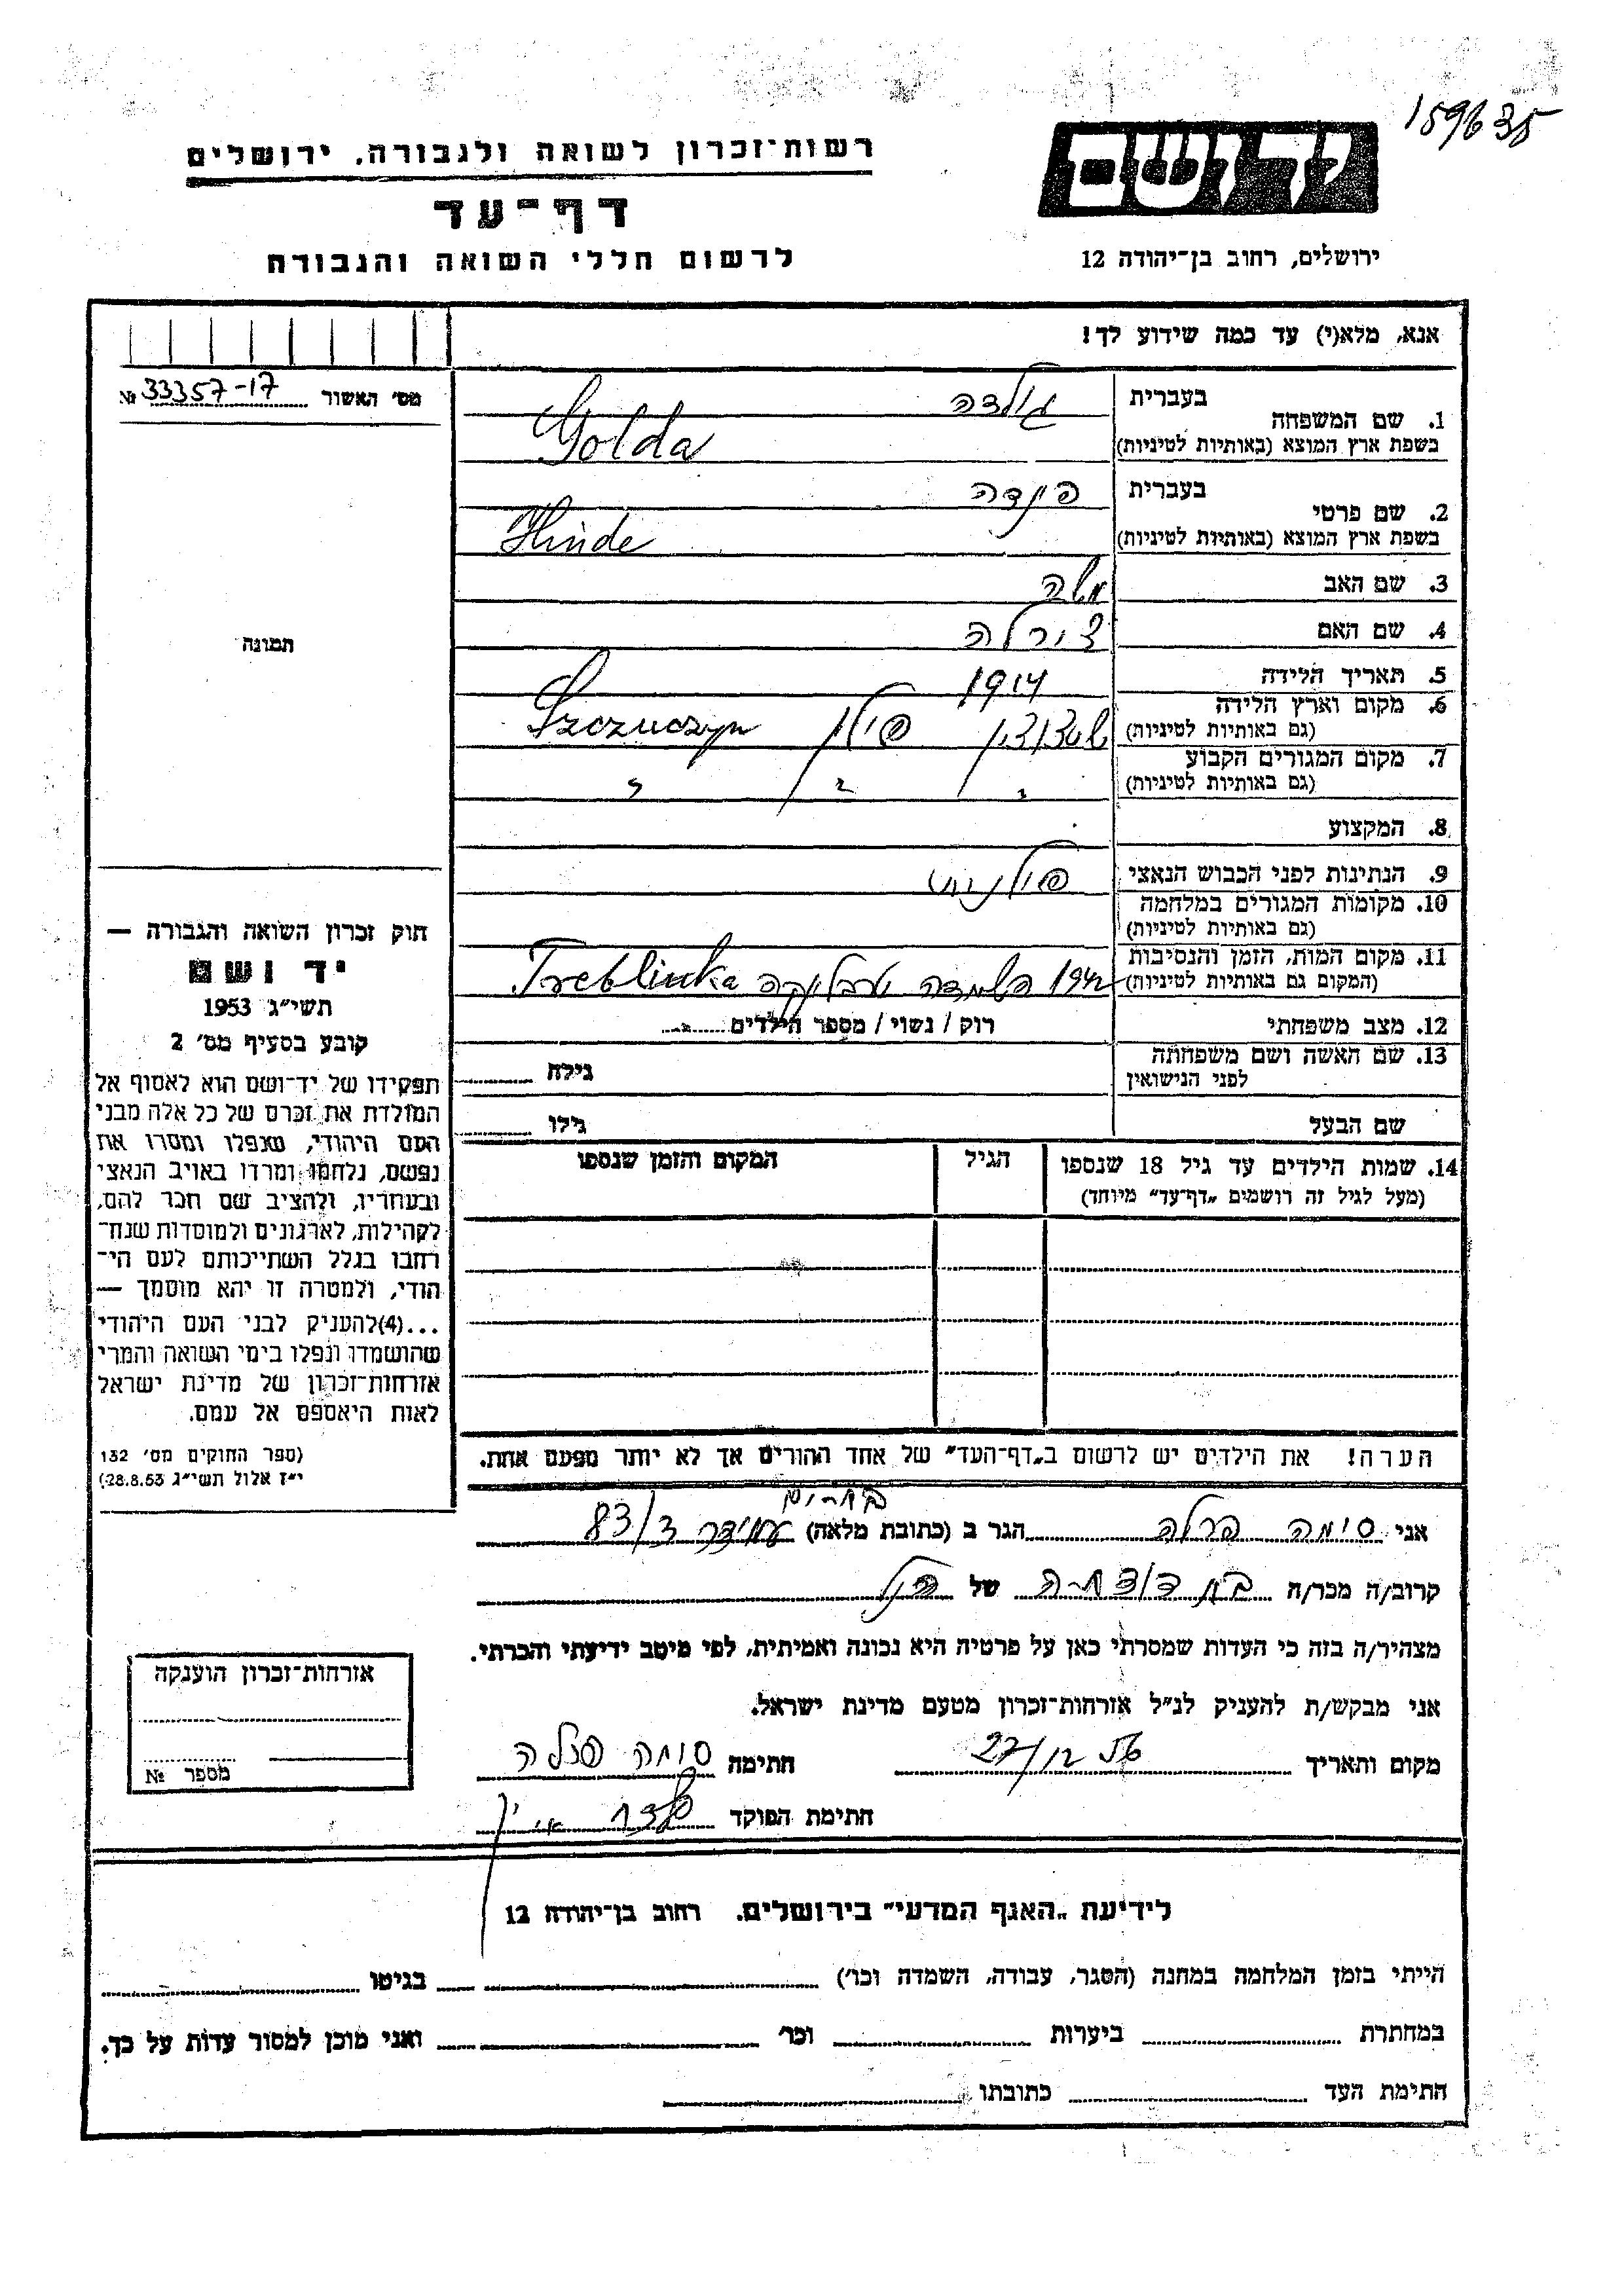 159635
יד ושם
רשות־זכרון לשואה ולגבורה, ירושלים
דף־עד
לרשום חללי השואה והגבורה
ירושלים, רחוב בן־יהודה 12
אנא, מלא(י) עד כמה שידוע לך!
מס׳ האשור № 33357-17
תמונה
בעברית גולדה
1. שם המשפחה
בשפת ארץ המוצא (באותיות לטיניות) Golda
בעברית הינדה
2. שם פרטי
בשפת ארץ המוצא (באותיות לטיניות) Hinde
3. שם האב משה
4. שם האם צירלה
5. תאריך הלידה 1914
6. מקום וארץ הלידה
(גם באותיות לטיניות) פולין Szczuczyn
7. מקום המגורים הקבוע
(גם באותיות לטיניות) " " "
8. המקצוע
9. הנתינות לפני הכבוש הנאצי פולנית
10. מקומות המגורים במלחמה
(גם באותיות לטיניות)
11. מקום המות, הזמן והנסיבות
(המקום גם באותיות לטיניות) 1942 השמדה טרבלינקה Treblinka
12. מצב משפחתי רוק / נשוי / מספר הילדים
13. שם האשה ושם משפחתה
לפני הנישואין גילה
שם הבעל גילו
14. שמות הילדים עד גיל 18 שנספו הגיל המקום והזמן שנספו
(מעל לגיל זה רושמים „דף־עד״ מיוחד)
הערה! את הילדים יש לרשום ב„דף־העד״ של אחד ההורים אך לא יותר מפעם אחת.
חוק זכרון השואה והגבורה —
יד ושם
תשי״ג 1953
קובע בסעיף מס׳ 2
תפקידו של יד־ושם הוא לאסוף אל
המולדת את זכרם של כל אלה מבני
העם היהודי, שנפלו ומסרו את
נפשם, נלחמו ומרדו באויב הנאצי
ובעוזריו, ולהציב שם וזכר להם,
לקהילות, לארגונים ולמוסדות שנח־
רבו בגלל השתייכותם לעם הי־
הודי, ולמטרה זו יהא מוסמך —
...(4)להעניק לבני העם היהודי
שהושמדו ונפלו בימי השואה והמרי
אזרחות־זכרון של מדינת ישראל
לאות היאספם אל עמם.
(ספר החוקים מס׳ 132
י״ז אלול תשי״ג 28.8.53)
אני סימה פרלה הגר ב (כתובת מלאה) עמידר ד/83
קרוב/ה מכר/ה בת דודתה של הנ״ל
מצהיר/ה בזה כי העדות שמסרתי כאן על פרטיה היא נכונה ואמיתית, לפי מיטב ידיעתי והכרתי.
אני מבקש/ת להעניק לנ״ל אזרחות־זכרון מטעם מדינת ישראל.
מקום ותאריך 27/12 56 חתימה סימה פרלה
חתימת הפוקד
אזרחות־זכרון הוענקה
מספר №
לידיעת „האגף המדעי״ בירושלים. רחוב בן־יהודה 12
הייתי בזמן המלחמה במחנה (הסגר, עבודה, השמדה וכו׳) בגיטו
במחתרת ביערות וכו׳ ואני מוכן למסור עדות על כך.
חתימת העד כתובתו